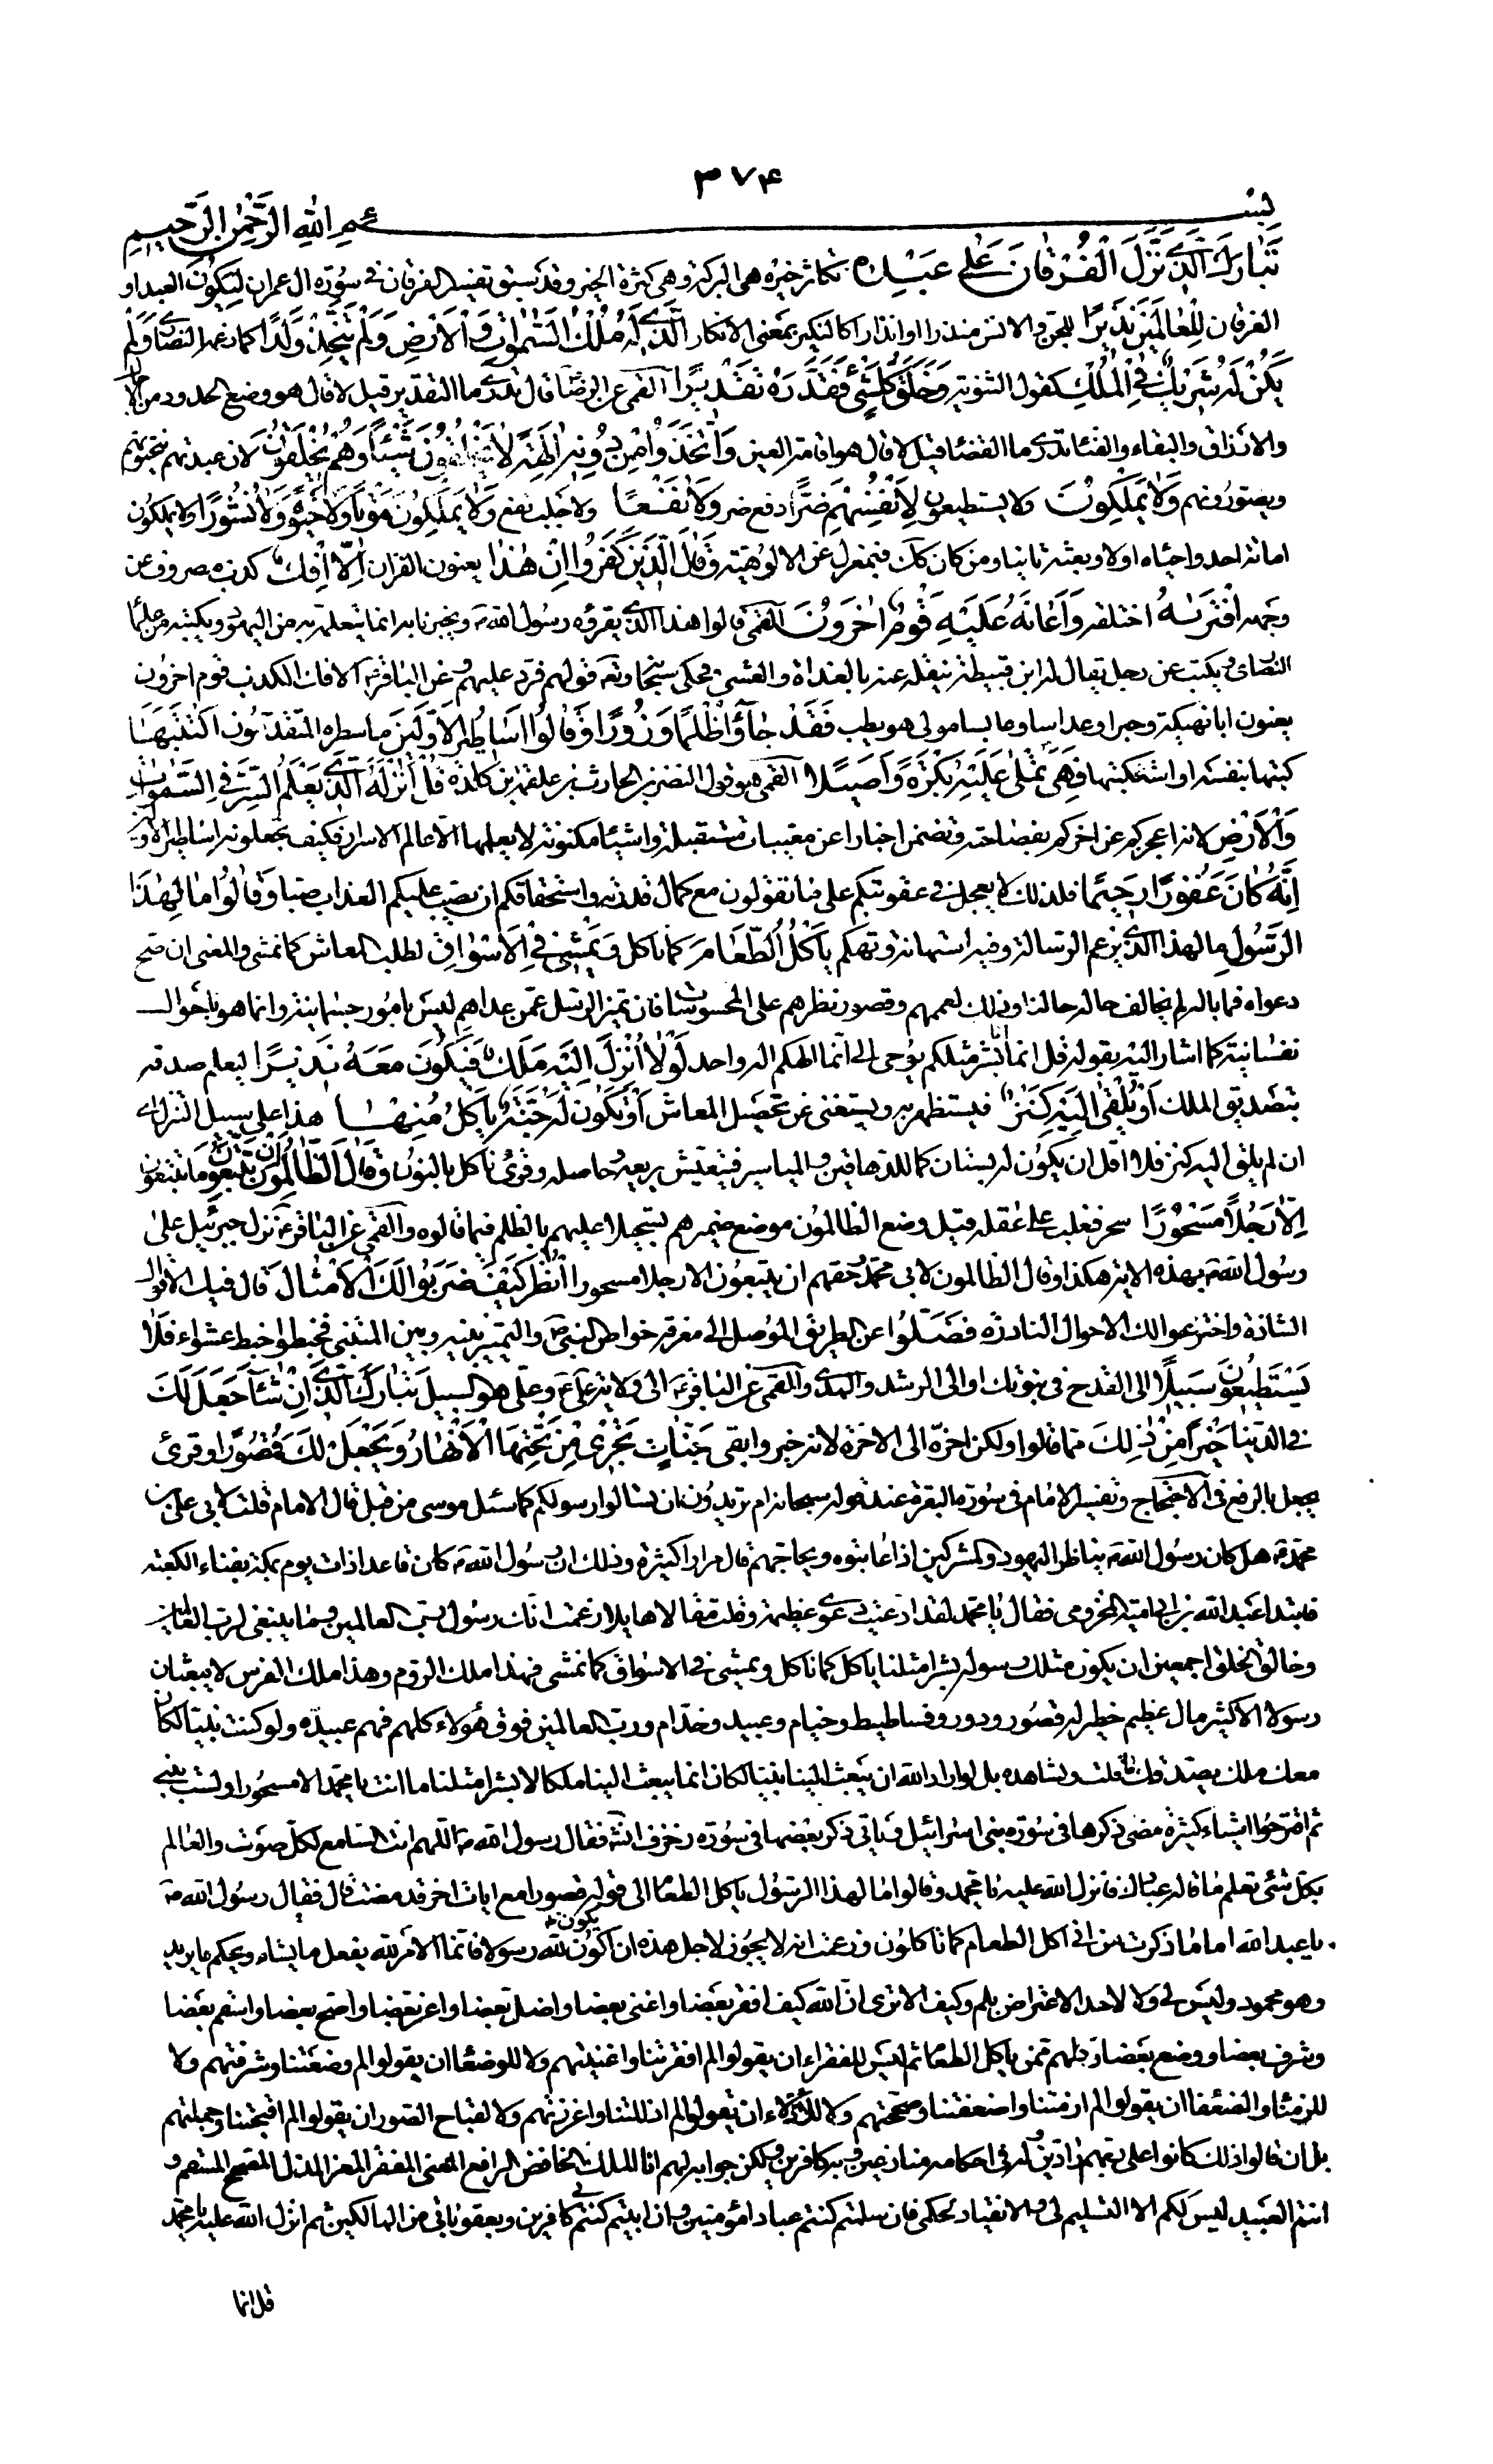 ٣٧۴
بِسْمِ اللهِ الرَّحْمٰنِ الرَّحِيمِ
تَبَارَكَ الَّذِي نَزَّلَ الْفُرْقَانَ عَلَى عَبْدِهِ تكاثر خيره من البركة وهي كثرة الخير وقد سبق تفسير الفرقان في سورة ال عمران لِيَكُونَ العبد او
الفرقان لِلْعَالَمِينَ نَذِيرًا للجن والانس منذرا او انذارا كالنكير بمعنى الانكار الَّذِي لَهُ مُلْكُ السَّمٰوَاتِ وَالْاَرْضِ وَلَمْ يَتَّخِذْ وَلَدًا كما زعمه النصارى وَلَمْ
يَكُنْ لَهُ شَرِيكٌ فِي الْمُلْكِ كقول الثنوية وَخَلَقَ كُلَّ شَيْءٍ فَقَدَّرَهُ تَقْدِيرًا القمي عن الرضا قال تدري ما التقدير قيل لا قال هو وضع الحدود من الاجال
والارزاق والبقاء والفناء تدري ما القضاء قيل لا قال هو اقامة العين وَاتَّخَذُوا مِنْ دُونِهِ اٰلِهَةً لَا يَخْلُقُونَ شَيْئًا وَهُمْ يُخْلَقُونَ لان عبدتهم ينحتونهم
ويصورونهم وَلَا يَمْلِكُونَ ولا يستطيعون لِاَنْفُسِهِمْ ضَرًّا دفع ضر وَلَا نَفْعًا ولا جلب نفع وَلَا يَمْلِكُونَ مَوْتًا وَلَا حَيٰوةً وَلَا نُشُورًا ولا يملكون
اماتة احد واحياه اولا وبعثه ثانيا ومن كان كك فبمعزل عن الالوهية وَقَالَ الَّذِينَ كَفَرُوا اِنْ هٰذَا يعنون القران اِلَّا اِفْكٌ كذب مصروف عن
وجهه افْتَرٰيهُ اختلقه وَاَعَانَهُ عَلَيْهِ قَوْمٌ اٰخَرُونَ القمي قالوا هذا الذي يقرؤه رسول الله ص ويخبرنا به انما يتعلمه من اليهود ويكتبه من علماء
النصارى ويكتب عن رجل يقال له ابن قبيطة ينقله عنه بالغداة والعشي فحكى سبحانه قولهم فرد عليهم وعن الباقر ع الافك الكذب قوم اخرون
يعنون ابا فهيكة وحبرا وعداسا وعابسا مولى حويطب فَقَدْ جَاؤُا ظُلْمًا وَزُورًا وَقَالُوا اَسَاطِيرُ الْاَوَّلِينَ ما سطره المتقدمون اكْتَتَبَهَا
كتبها بنفسه او استكتبها فَهِيَ تُمْلٰى عَلَيْهِ بُكْرَةً وَاَصِيلًا القمي هو قول النضر بن الحارث بن علقمة بن كلدة قُلْ اَنْزَلَهُ الَّذِي يَعْلَمُ السِّرَّ فِي السَّمٰوَاتِ
وَالْاَرْضِ لانه اعجزكم عن اخركم بفصاحته وتضمن اخبارا عن مغيبات مستقبلة واشياء مكنونة لا يعلمها الا عالم الاسرار فكيف تجعلونه اساطير الاولين
اِنَّهُ كَانَ غَفُورًا رَحِيمًا فلذلك لا يعجل في عقوبتكم على ما تقولون مع كمال قدرته واستحقاقكم ان يصب عليكم العذاب صبا وَقَالُوا مَا لِهٰذَا
الرَّسُولِ ما لهذا الذي يزعم الرسالة وفيه استهانة وتهكم يَاْكُلُ الطَّعَامَ كما ناكل وَيَمْشِي فِي الْاَسْوَاقِ لطلب المعاش كما نمشي والمعنى ان صح
دعواه فما باله لم يخالف حاله حالنا وذلك لعمههم وقصور نظرهم على المحسوسات فان تميز الرسل عمن عداهم ليس بامور جسمانية وانما هو باحوال
نفسانية كما اشار اليه بقوله قل انما انا بشر مثلكم يوحى الي انما الهكم اله واحد لَوْلَا اُنْزِلَ اِلَيْهِ مَلَكٌ فَيَكُونَ مَعَهُ نَذِيرًا ليعلم صدقه
بتصديق الملك اَوْ يُلْقٰى اِلَيْهِ كَنْزٌ فيستظهر به ويستغني عن تحصيل المعاش اَوْ تَكُونُ لَهُ جَنَّةٌ يَاْكُلُ مِنْهَا هذا على سبيل التنزل اي
ان لم يلق اليه كنز فلا اقل ان يكون له بستان كما للدهاقين والمياسير فيتعيش بريعه حاصله وقرئ ناكل بالنون وَقَالَ الظَّالِمُونَ اِنْ تَتَّبِعُونَ ما تتبعون
اِلَّا رَجُلًا مَسْحُورًا سحر فغلب على عقله قيل وضع الظالمون موضع ضميرهم تسجيلا عليهم بالظلم فيما قالوه والقمي عن الباقر ع نزل جبرئيل على
رسول الله ص بهذه الاية هكذا وقال الظالمون لال محمد حقهم ان تتبعون الا رجلا مسحورا انْظُرْ كَيْفَ ضَرَبُوا لَكَ الْاَمْثَالَ قال فيك الاقوال
الشاذة واخترعوا لك الاحوال النادرة فَضَلُّوا عن الطريق الموصل الى معرفة خواص النبي ص والتميز بينه وبين المتنبي فخبطوا خبط عشواء فَلَا
يَسْتَطِيعُونَ سَبِيلًا الى القدح في نبوتك او الى الرشد والهدى والقمي عن الباقر ع الى ولاية علي ع وعلي هو السبيل تَبَارَكَ الَّذِي اِنْ شَاءَ جَعَلَ لَكَ
في الدنيا خَيْرًا مِنْ ذٰلِكَ مما قالوا ولكن اخره الى الاخرة لانه خير وابقى جَنَّاتٍ تَجْرِي مِنْ تَحْتِهَا الْاَنْهَارُ وَيَجْعَلْ لَكَ قُصُورًا وقرئ
يجعل بالرفع في الاحتجاج وتفسير الامام في سورة البقرة عند قوله سبحانه ام تريدون ان تسالوا رسولكم كما سئل موسى من قبل قال الامام قلت لابي علي بن
محمد ع هل كان رسول الله ص يناظر اليهود والمشركين اذا عاتبوه ويحاجهم قال مرارا كثيرة وذلك ان رسول الله ص كان قاعدا ذات يوم بمكة بفناء الكعبة
فابتدا عبد الله بن ابي امية المخزومي فقال يا محمد لقد ادعيت دعوى عظيمة وقلت مقالا هايلا زعمت انك رسول رب العالمين وما ينبغي لرب العالمين
وخالق الخلق اجمعين ان يكون مثلك رسوله بشرا مثلنا ياكل كما ناكل ويمشي في الاسواق كما نمشي فهذا ملك الروم وهذا ملك الفرس لا يبعثان
رسولا الا كثير مال عظيم خطير له قصور ودور وفساطيط وخيام وعبيد وخدام ورب العالمين فوق هؤلاء كلهم فهم عبيده ولو كنت نبيا لكان
معك ملك يصدقك ونشاهده بل لو اراد الله ان يبعث الينا نبيا لكان انما يبعث الينا ملكا لا بشرا مثلنا ما انت يا محمد الا مسحورا ولست بنبي
ثم اقترحوا اشياء كثيرة مضى ذكرها في سورة بني اسرائيل وياتي ذكر بعضها في سورة زخرف انش فقال رسول الله ص اللهم انت السامع لكل صوت والعالم
بكل شئ تعلم ما قاله عبادك فانزل الله عليه يا محمد وقالوا ما لهذا الرسول ياكل الطعام الى قوله قصورا مع ايات اخر قد مضت قال فقال رسول الله ص
يا عبد الله اما ما ذكرت من اني اكل الطعام كما تاكلون وزعمت انه لا يجوز لاجل هذه ان اكون لله رسولا فانما الامر لله يفعل ما يشاء ويحكم ما يريد
وهو محمود وليس لي ولا لاحد الاعتراض بلم وكيف الا ترى ان الله كيف افقر بعضا واغنى بعضا واضل بعضا واعز بعضا واصح بعضا واسقم بعضا
وشرف بعضا ووضع بعضا وكلهم ممن ياكل الطعام ثم ليس للفقراء ان يقولوا لم افقرتنا واغنيتهم ولا للوضعاء ان يقولوا لم وضعتنا وشرفتهم ولا
للزمناء والضعفاء ان يقولوا لم ازمنتنا واضعفتنا وصححتهم ولا للاذلاء ان يقولوا لم اذللتنا واعززتهم ولا لقباح الصور ان يقولوا لم اقبحتنا وجملتهم
بل ان قالوا ذلك كانوا على ربهم رادين وله في احكامه منازعين وبه كافرين ولكن جوابه لهم انا الملك الخافض الرافع المغني المفقر المعز المذل المصحح المسقم و
انتم العبيد ليس لكم الا التسليم لي والانقياد لحكمي فان سلمتم كنتم عبادا مؤمنين وان ابيتم كنتم كافرين وبعقوباتي من الهالكين ثم انزل الله عليه يا محمد
قل انما